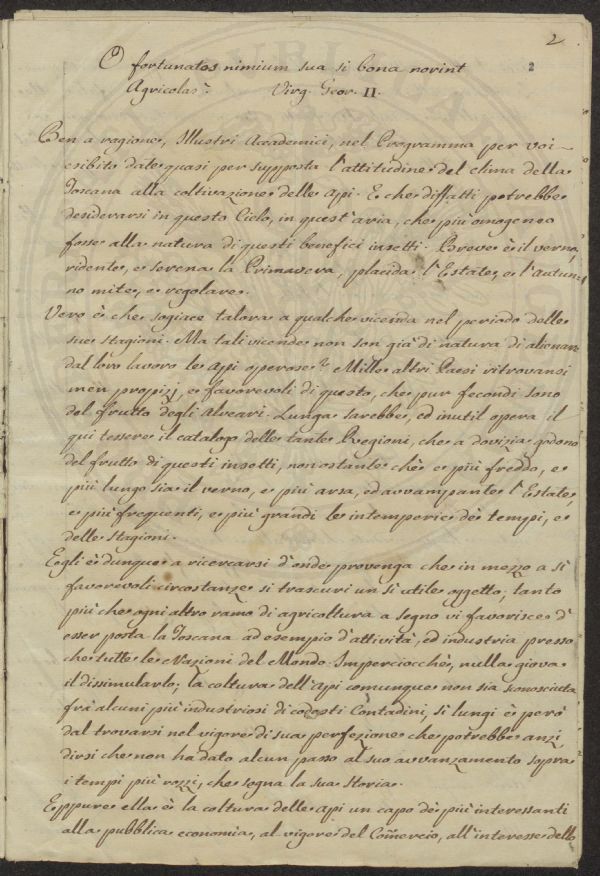 2
2
O fortunatos nimium sua si bona norint
Agricolas. Virg. Geor. II.
Ben a ragione, Illustri Academici, nel Programma per voi
esibito date quasi per supposta l'attitudine del clima della
Toscana alla coltivazione delle Api. E che diffatti potrebbe
desiderarsi in questo Cielo, in quest'aria, che più omogeneo
fosse alla natura di questi benefici insetti. Breve è il verno,
ridente, e serena la Primavera, placida l'Estate, e l'Autun-
no mite, e regolare.
Vero è che sogiace talora a qualche vicenda nel periodo delle
sue stagioni. Ma tali vicende non son già di natura di alienare
dal loro lavoro le Api operose. Mille altri Paesi ritrovansi
men propizj, e favorevoli di questo, che pur fecondi sono
del frutto degli Alveari. Lunga sarebbe, ed inutil opera il
qui tessere il catalogo delle tante Regioni, che a dovizia godono
del frutto di questi insetti, nonostante chè e più freddo, e
più lungo sia il verno, e più arsa, ed avvampante l'Estate,
e più frequenti, e più grandi le intemperie dè tempi, e
delle stagioni.
Egli è dunque a ricercarsi d'onde provenga che in mezzo a sì
favorevoli circostanze si trascuri un sì utile oggetto; tanto
più che ogni altro ramo di agricoltura a segno vi favorisce d'
esser posta la Toscana ad esempio d'attività, ed industria presso
che tutte le Nazioni del Mondo. Imperciocchè, nulla giova
il dissimularlo; la coltura dell'Api comunque non sia sconosciuta
frà alcuni più industriosi di codesti Contadini, sì lungi è però
dal trovarsi nel vigore di sua perfezione che potrebbe anzi
dirsi che non ha dato alcun passo al suo avvanzamento sopra
i tempi più rozzi, che segna la sua storia.
Eppure ella è la coltura delle Api un capo dè più interessanti
alla pubblica economia, al vigore del Comercio, all'interesse dello